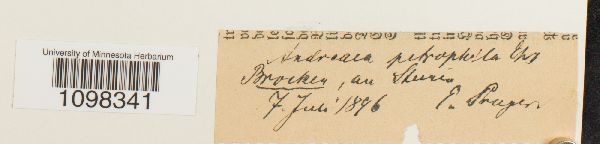 University of Minnesota Herbarium
1098341
Andreaea petrophila Ehr
Brocken, an
7. Juli 1896 E. Prager.